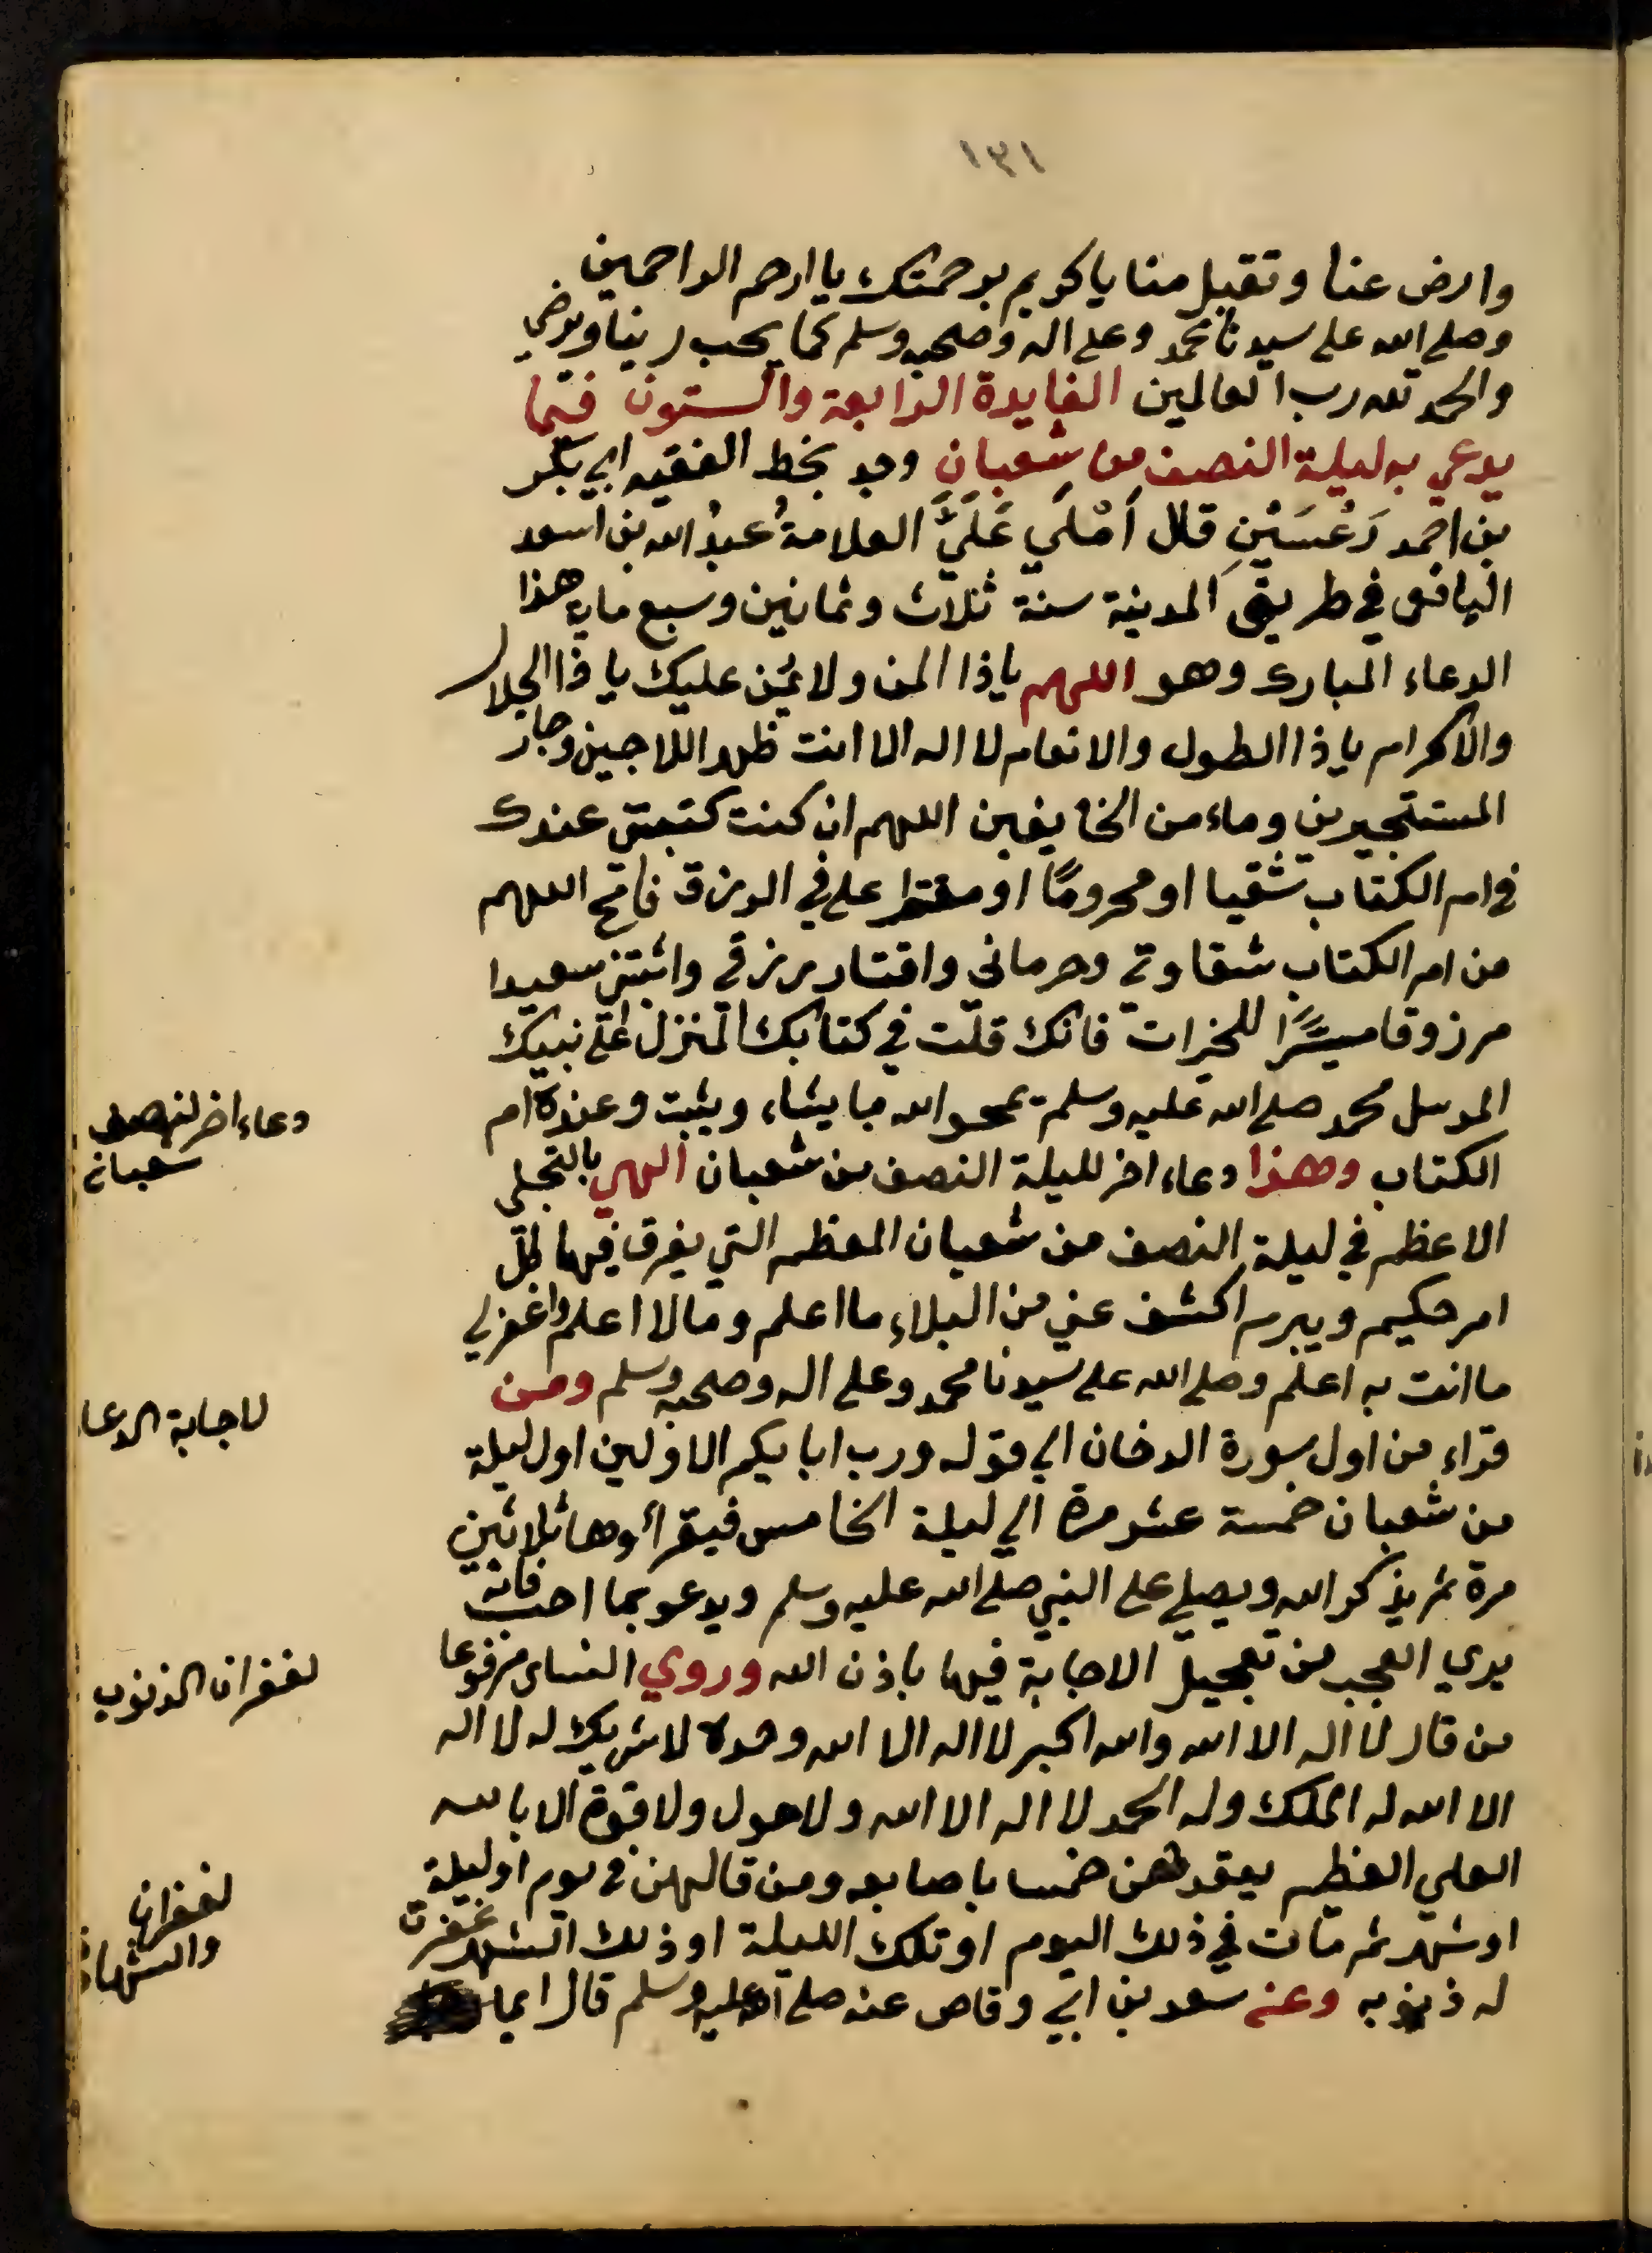 ١٣١
وارض عنا وتقبل منا ياكريم برحمتك يا ارحم الراحمين
وصلى الله على سيدنا محمد وعلى اله وصحبه وسلم كما يحب ربنا ويرضى
والحمد لله رب العالمين الفايدة الرابعة والستون فيما
يدعي به ليلة النصف من شعبان وجد بخط الفقيه ابي بكر
بن احمد دَعْسَيْنِ قال اَمْلَي عَلَيَّ العلامةُ عبدُ الله بن اسعد
اليافعي في طريق المدينة سنة ثلاث وثمانين وسبع مايه هذا
الدعاء المبارك وهو اللهم ياذا المن ولا يمن عليك يا ذا الجلال
والاكرام ياذا الطول والانعام لا اله الا انت ظهر اللاجين وجار
المستجيرين وماءمن الخايفين اللهم ان كنت كتبتني عندك
في ام الكتاب شقيا او محرومًا او مقترا علي في الرزق فامح اللهم
من ام الكتاب شقاوتي وحرماني واقتار رزقي واثبتني سعيدا
مرزوقا ميسَّرًا للخيرات فانك قلت في كتابك المنزل على نبيك
المرسل محمد صلى الله عليه وسلم يمحو الله ما يشاء ويثبت وعنده ام
الكتاب وهذا دعاء اخر لليلة النصف من شعبان الهي بالتجلي
الاعظم في ليلة النصف من شعبان المعظم التي يفرق فيها كل
امر حكيم ويبرم اكشف عني من البلاء ما اعلم وما لا اعلم واغفر لي
ما انت به اعلم وصلى الله على سيدنا محمد وعلى اله وصحبه وسلم ومن
قراء من اول سورة الدخان الي قوله ورب ابايكم الاولين اول ليلة
من شعبان خمسة عشر مرة الي ليلة الخامس فيقراوها ثلاثين
مرة ثم يذكر الله ويصلي على النبي صلى الله عليه وسلم ويدعو بما احب فانه
يري العجب من تعجيل الاجابة فيها باذن الله وروي النساي مرفوعا
من قال لا اله الا الله والله اكبر لا اله الا الله وحده لا شريك له لا اله
الا الله له الملك وله الحمد لا اله الا الله ولا حول ولا قوة الا بالله
العلي العظيم يعقدهن خمسا باصابعه ومن قالهن في يوم او ليلة
او شهر ثم مات في ذلك اليوم او تلك الليلة او ذلك الشهر غفرت
له ذنوبه وعن سعد بن ابي وقاص عنه صلى الله عليه وسلم قال ايما
دعاء اخر لنصف
شعبان
لاجابة الدعا
لغفران الذنوب
لغفران
والشهادة